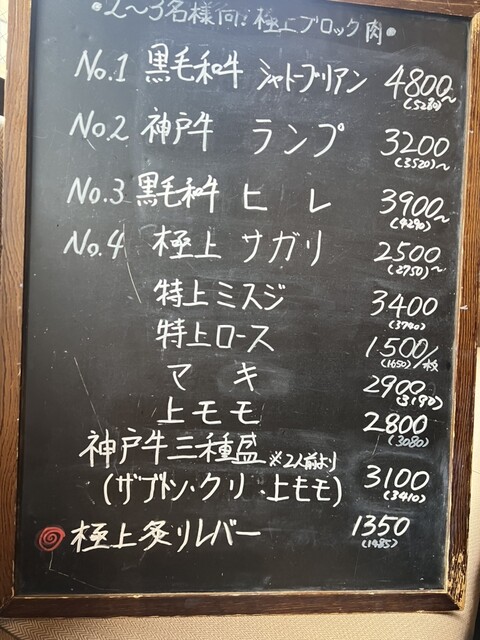 ・2〜3名様向け極上ブロック肉・
No.1 黒毛和牛 シャトーブリアン 4800〜
(5280)
No.2 神戸牛 ランプ 3200
(3520)〜
No.3 黒毛和牛 ヒレ 3900〜
(4290)
No.4 極上 サガリ 2500
(2750)〜
特上ミスジ 3400
(3740)
特上ロース 1500/枚
(1650)
マキ 2900
(3190)
上モモ 2800
(3080)
神戸牛三種盛 ※2人前より
(ザブトン・クリ・上モモ) 3100
(3410)
極上炙りレバー 1350
(1485)